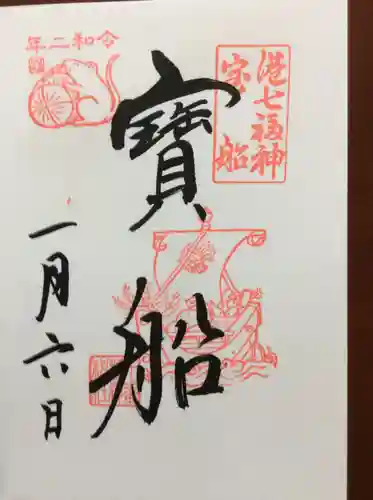 令和二年
港七福神
宝船
寶船
一月六日